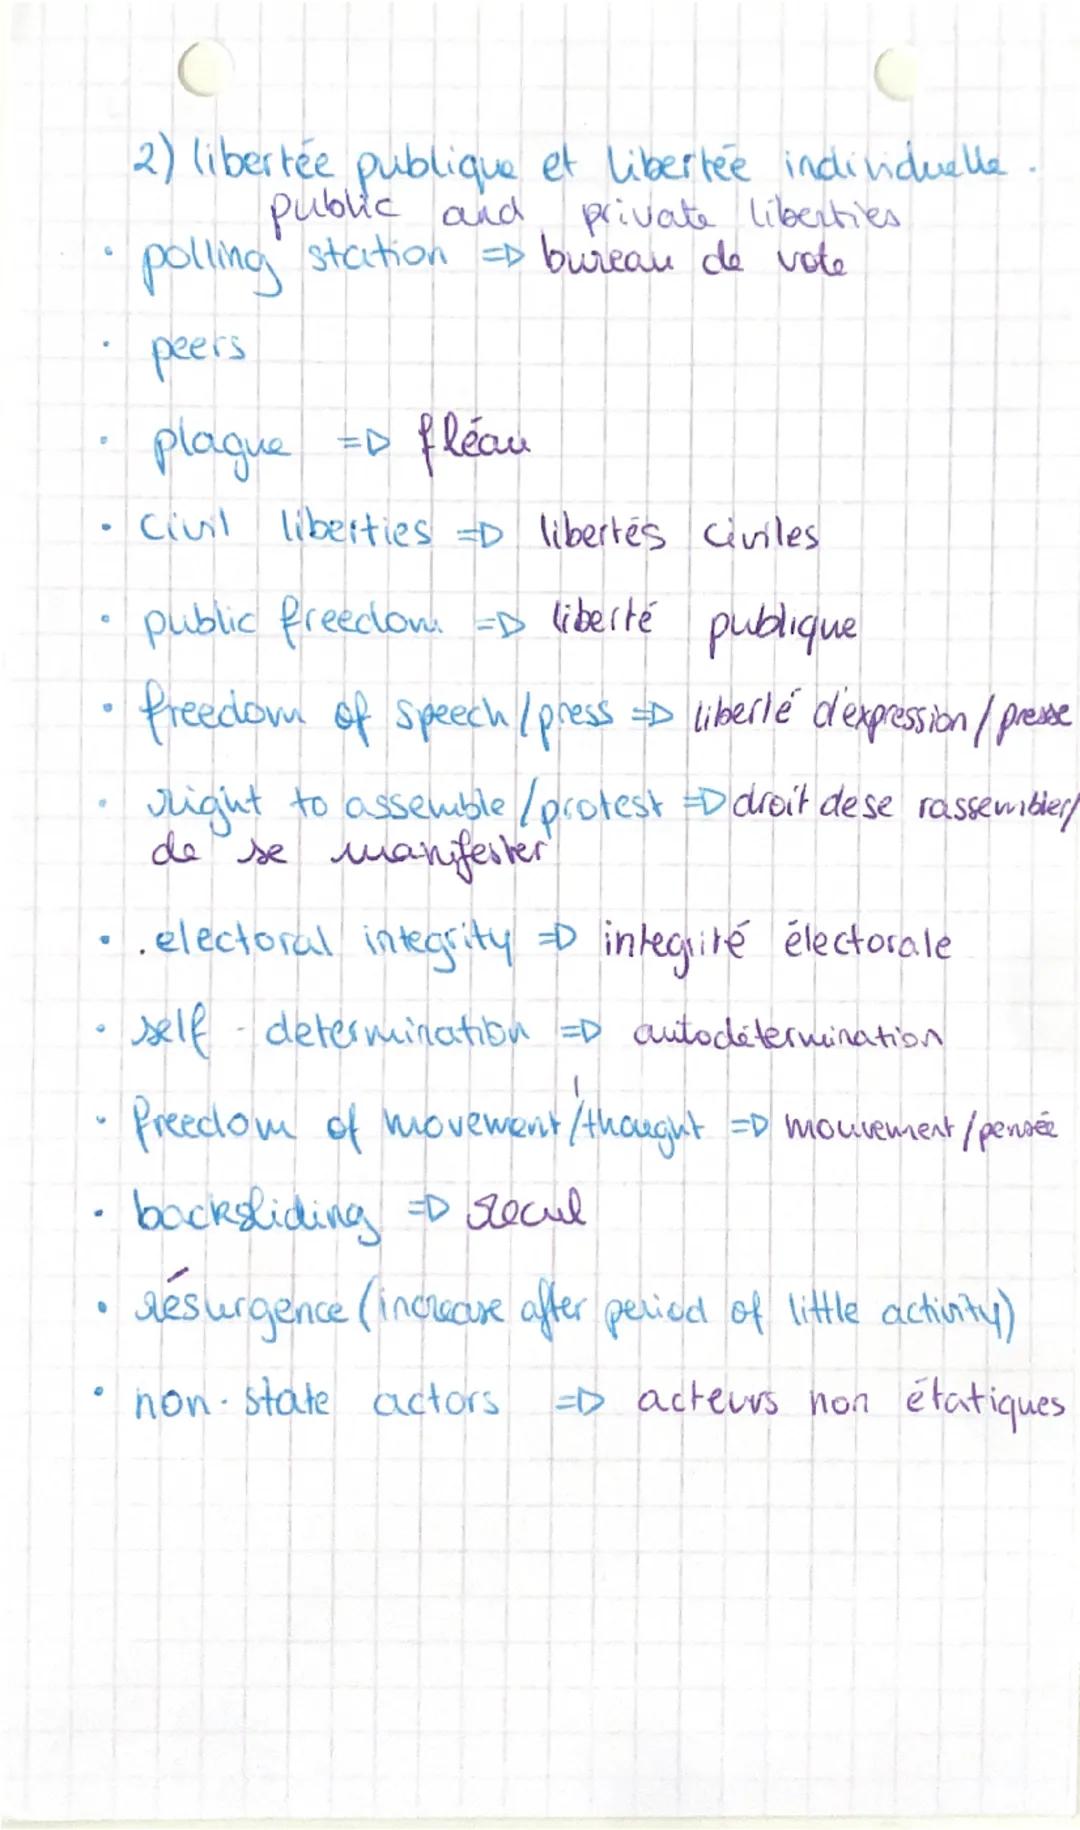 2) libertée publique et libertée individuelle.
public and private liberties
• polling station => bureau de vote
• peers
• plague => fléau
• Civil liberties => libertés civiles
• public freedom => liberté publique
• freedom of speech/press => liberté d'expression/presse
• right to assemble/protest => droit de se rassembler/
de se manifester
• .electoral integrity => intégrité électorale
• self-determination => autodétermination
• freedom of movement/thought => mouvement/pensée
• backsliding => recul
• résurgence (increase after period of little activity)
• non-state actors => acteurs non étatiques